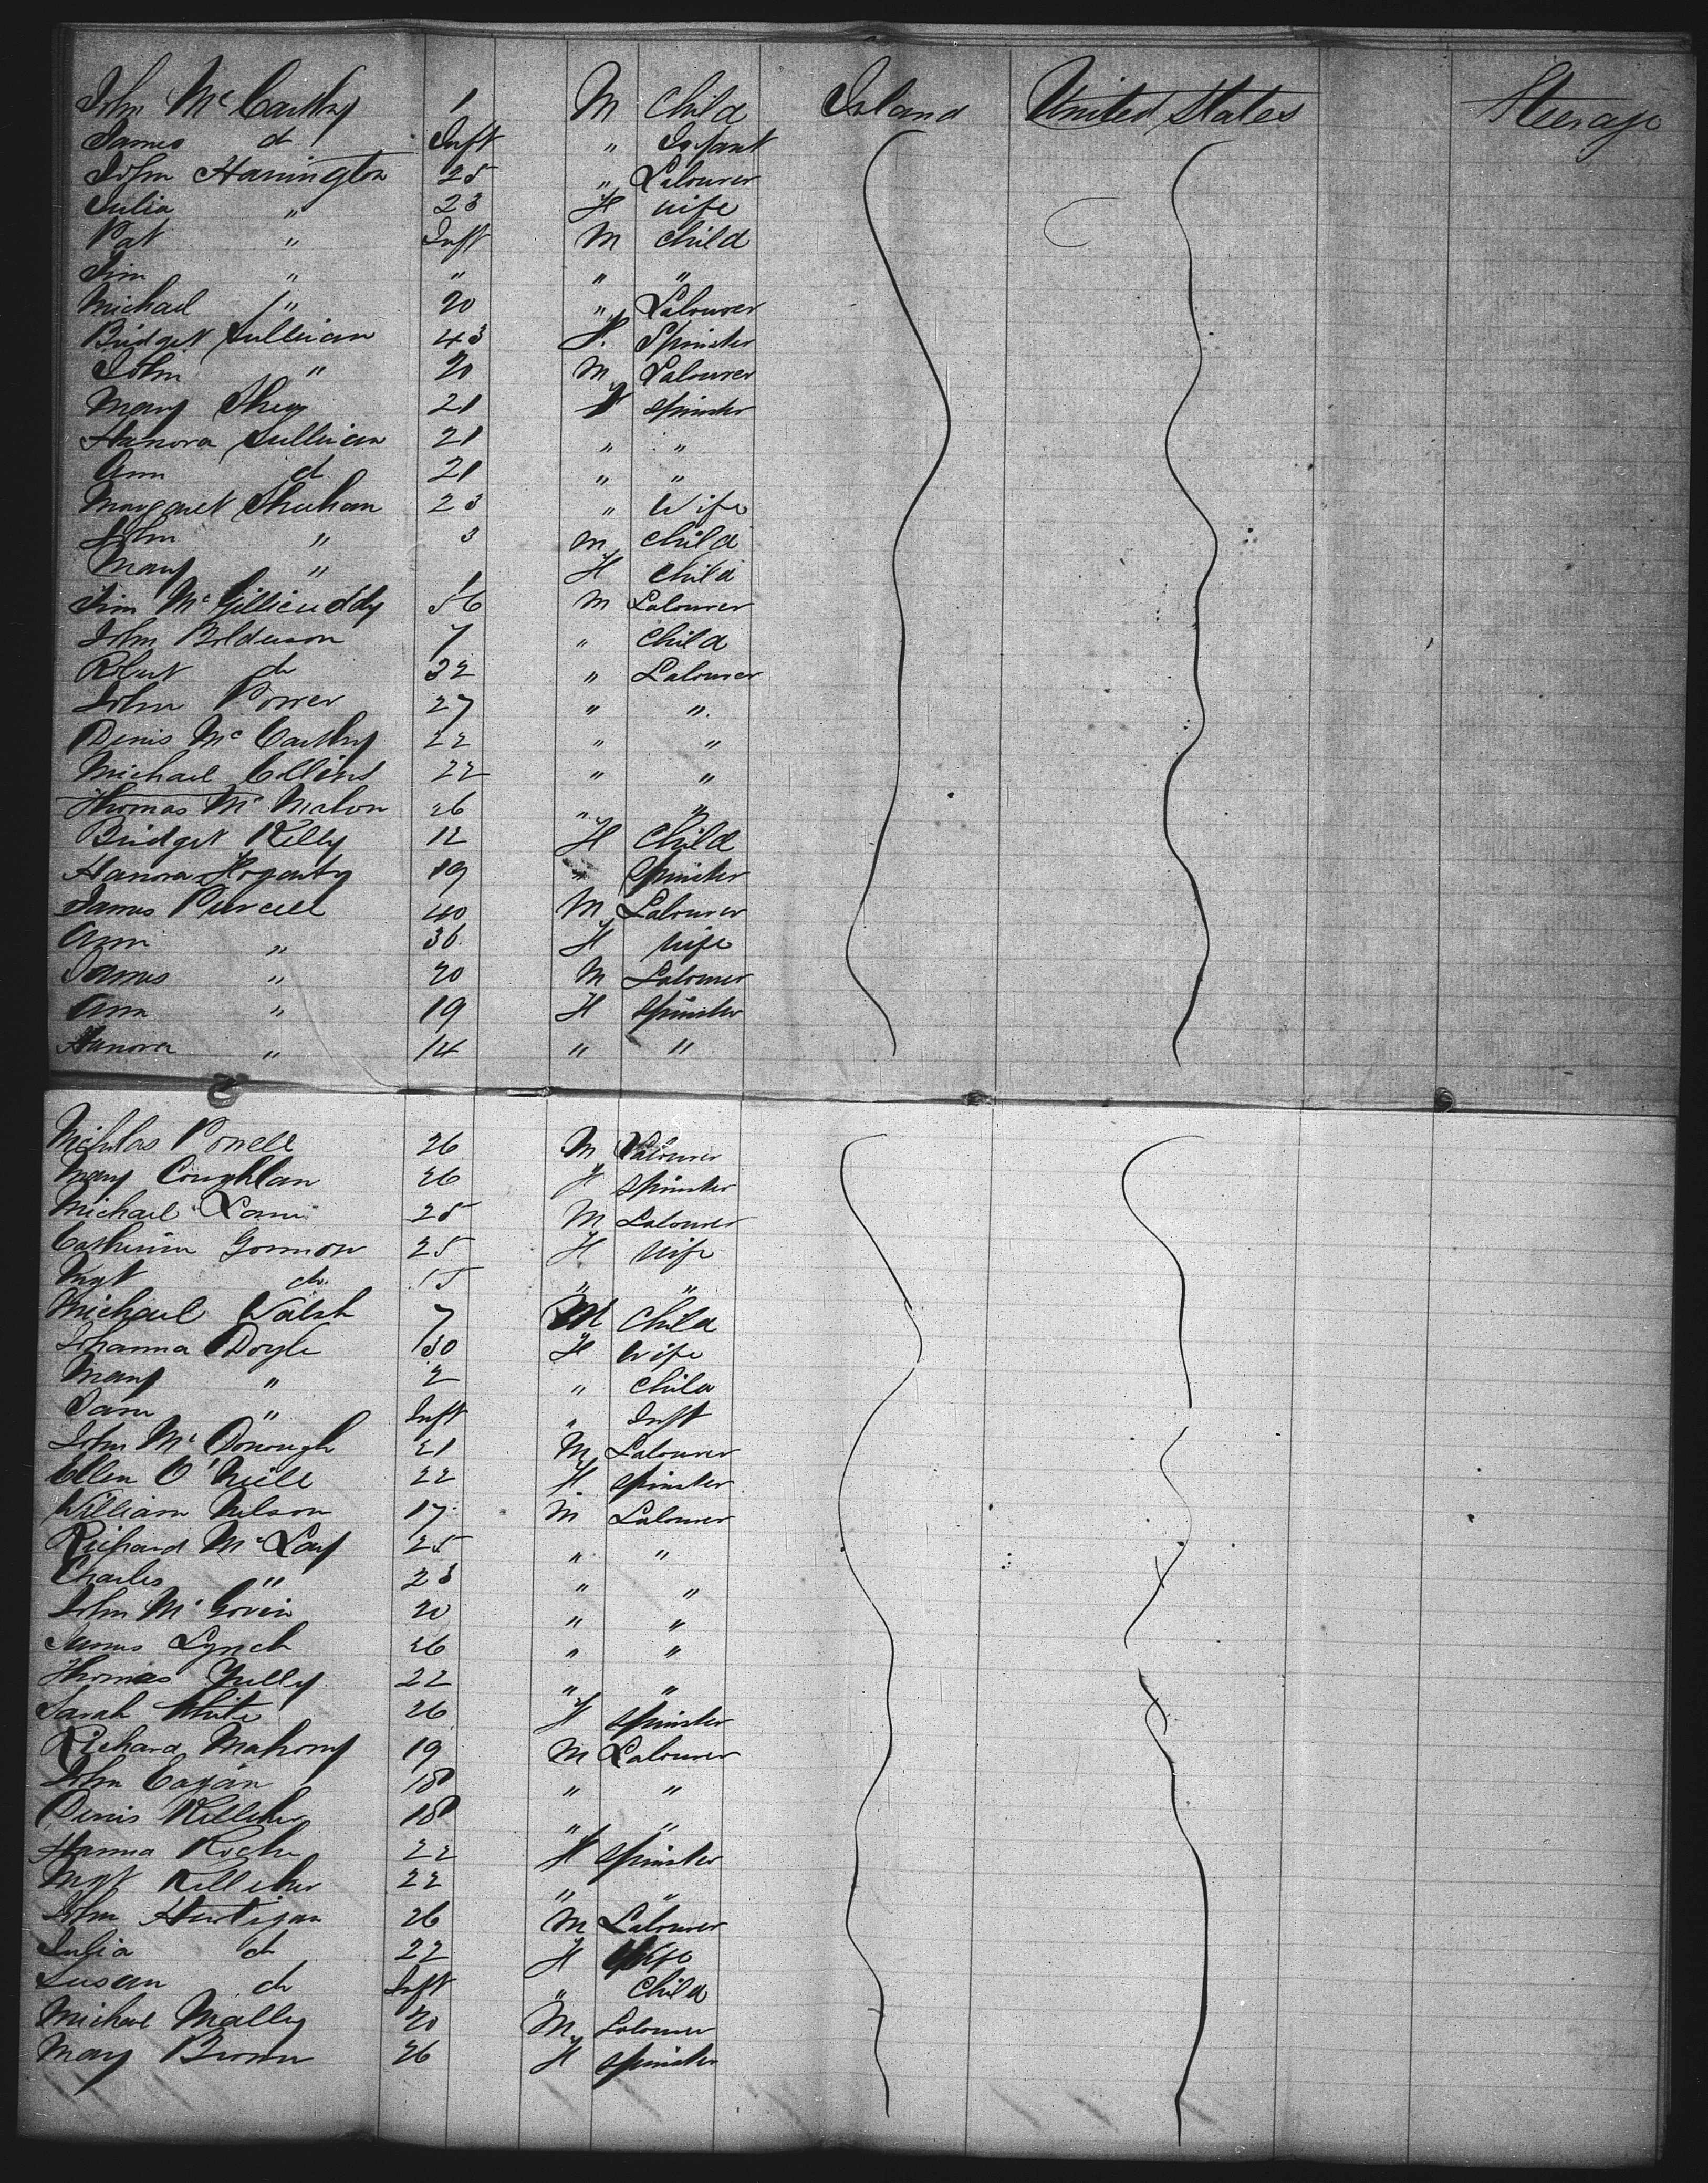 John McCarthy 1 M Child Ireland United States Steerage
James do Inft " Infant
John Harrington 25 " Labourer
Julia " 23 F wife
Pat " Inft M Child
Jim " " " "
Michael " 20 " Labourer
Bridget Sullivan 43 F. Spinster
John " 20 M Labourer
Mary Shea 21 F Spinster
Hanora Sullivan 21 " "
Ann do 21 " "
Margaret Sheehan 23 " Wife
John " 3 M Child
Mary " 1 F Child
Jim McGillicuddy 56 M Labourer
John Bolderson 7 " Child
Robert do 32 " Labourer
John Power 27 " "
Denis McCarthy 22 " "
Michael Collins 22 " "
Thomas McMahon 26 " "
Bridget Kelly 12 F Child
Hanora Hogarty 19 " Spinster
James Purcell 40 M Labourer
Ann " 36 F wife
James " 20 M Labourer
Ann " 19 F Spinster
Hanora " 14 " "
Nicholas Powell 26 M Labourer
Mary Coughlan 26 F Spinster
Michael 25 M Labourer
Catherine Gormon 25 F wife
Mgt do. 15 " "
Michael Walsh 7 M Child
Johanna Doyle 30 F Wife
Mary " 2 " Child
Jane " Inft " Inft
John McDonough 21 M Labourer
Ellen O'Neill 22 F Spinster
William Nelson 17 M Labourer
Richard McLay 25 " "
Charles " 23 " "
John McGovein 20 " "
James Lynch 26 " "
Thomas 22 " "
Sarah White 26 F Spinster
Richard Mahony 19 M Labourer
John Eagan 18 " "
Denis Kelleher 18 " "
Hanna Roche 22 F Spinster
Mgt Kelleher 22 " "
John Hartigan 26 M Labourer
Julia do 22 F Wife
Susan do Inft " Child
Michael Malley 20 M Labourer
Mary Brown 26 F Spinster